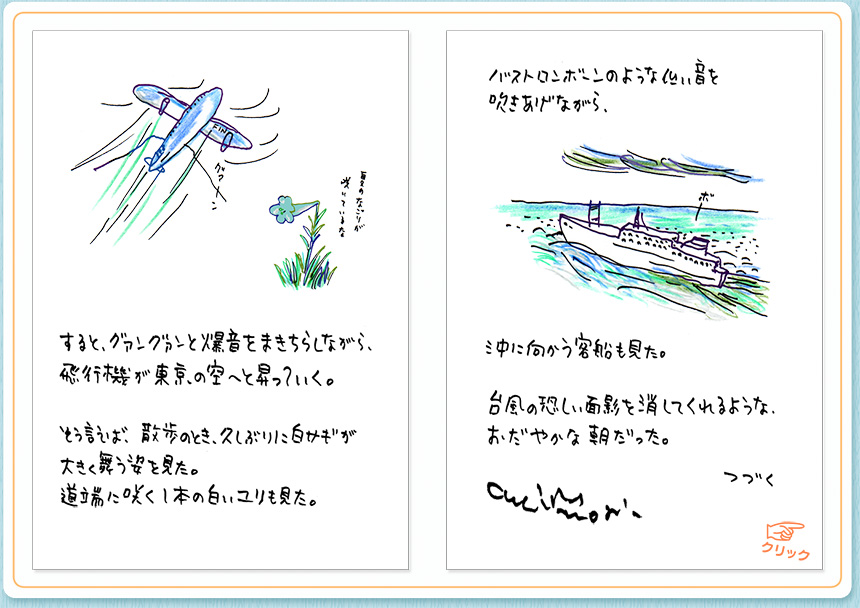 グァーン
夏のなごりが
咲いているな
すると、グァングァンと爆音をまきちらしながら、
飛行機が東京の空へと昇っていく。
そう言えば、散歩のとき、久しぶりに白サギが
大きく舞う姿を見た。
道端に咲く1本の白いユリも見た。
バストロンボーンのような低い音を
吹きあげながら、
ボー
沖に向かう客船も見た。
台風の恐しい面影を消してくれるような、
おだやかな朝だった。
つづく
クリック